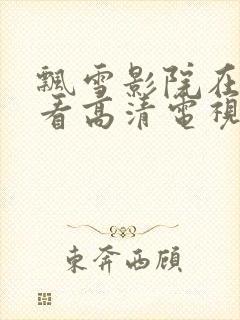 飄雪影院在
看高清電視
東奔西顧